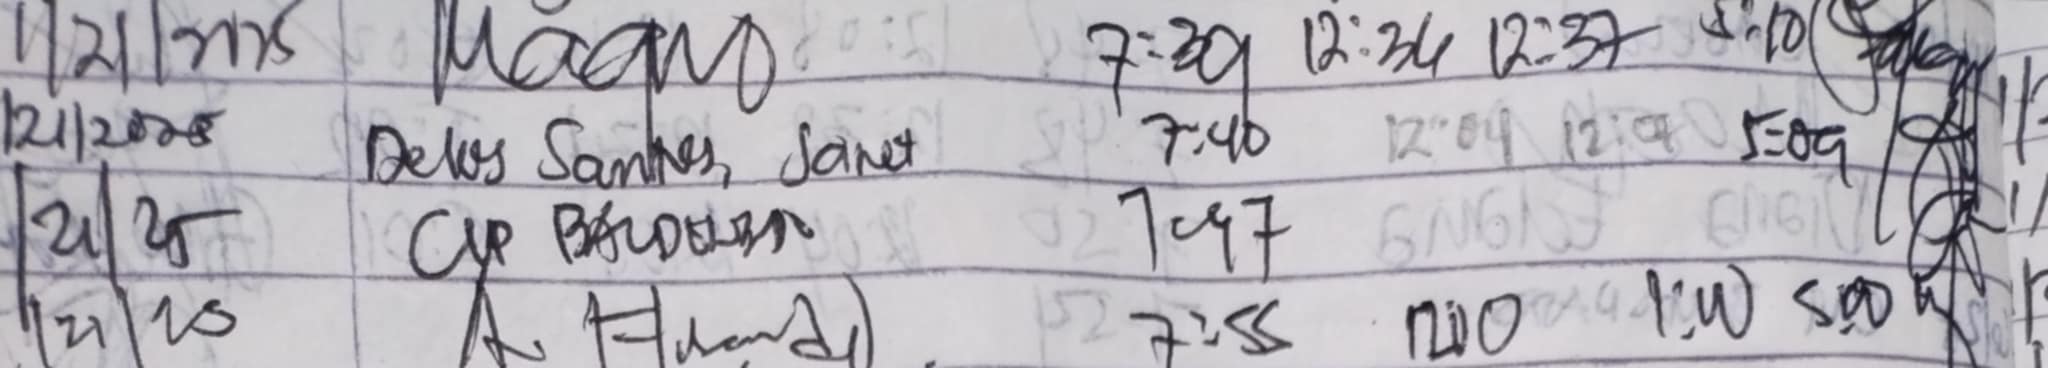 1/21/2025 Magno 7:39 12:34 12:37 5:10
1/21/2025 Delos Santos, Janet 7:40 12:04 12:09 5:09
1/21/25 7:47
1/21/25 A. 7:55 12:10 1:00 5:00